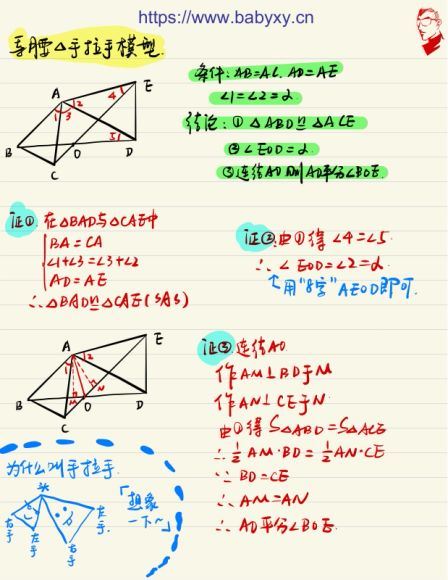 https://www.babyxy.cn
等腰△手拉手模型.
条件: AB=AC. AD=AE
∠1=∠2=α
结论: ① △ABD≌△ACE
② ∠EOD=α.
③连结AO 则AO平分∠BOE.
A
E
B
C
O
D
1
2
3
4
5
证①. 在△BAD与△CAE中
BA=CA
∠1+∠3=∠3+∠2
AD=AE
∴△BAD≌△CAE(SAS)
证②:由①得 ∠4=∠5.
∴∠EOD=∠2=α
用"8字"AEOD即可.
A
E
B
C
O
D
1
2
M
N
证③连结AO.
作AM⊥BD于M
作AN⊥CE于N.
由①得 S△ABD=S△ACE
∴½AM·BD=½AN·CE
∵BD=CE
∴AM=AN
∴AO平分∠BOE.
为什么叫手拉手.
头
右手
左手
右手
左手
「想象一下~」